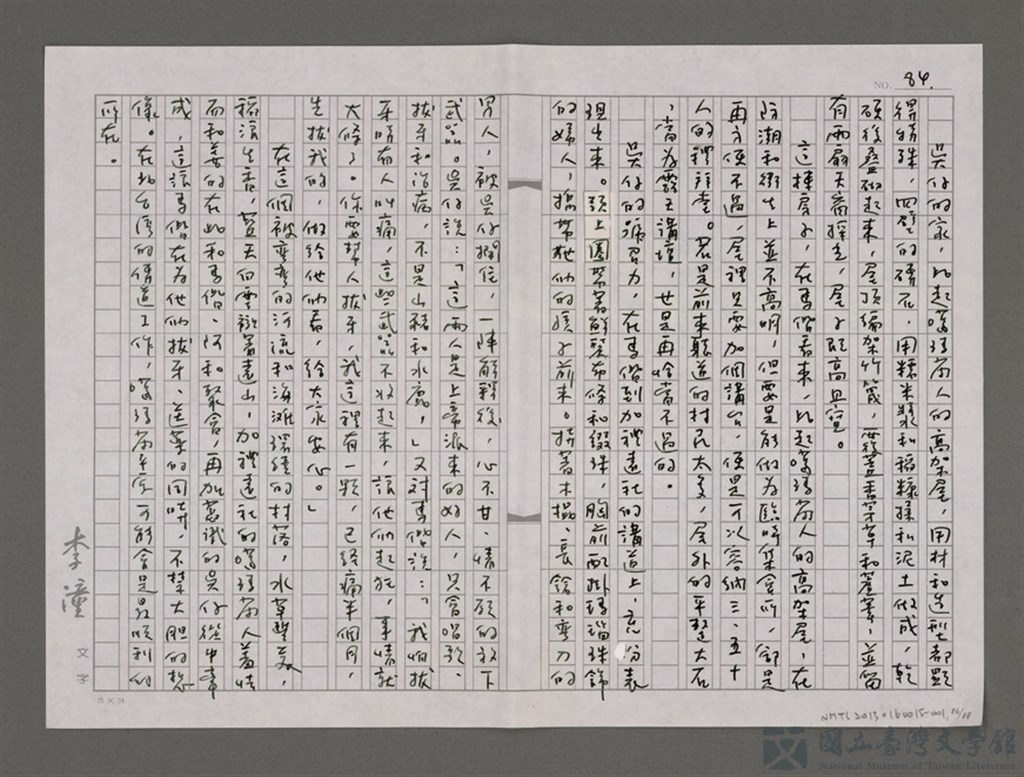 NO. 84.
吳仔的家，比起噶瑪蘭人的高架屋，用材和造型都顯
得特殊，四壁的磚石，用糯米漿和稻糠揉和泥土做成，乾
硬後疊砌起來，屋頂編架竹篾，覆蓋香茅草和蘆葦，並留
有兩扇天窗採光，屋子既高且寬。
這棟房子，在馬偕看來，比起噶瑪蘭人的高架屋，在
防潮和衛生上並不高明，但要是能做為臨時集會所，卻是
再方便不過，屋裡只要加個講台，便是可以容納三、五十
人的禮拜堂。若是前來聽道的村民太多，屋外的平整大石
，當為露天講壇，也是再恰當不過的。
吳仔的號召力，在馬偕到加禮遠社的講道上，充份表
現出來。頭上圍繫著鮮豔布條和綴珠，胸前配掛瑪瑙珠飾
的婦人，攜帶她們的孩子前來。持著木棍、長鎗和彎刀的
男人，被吳仔攔住，一陣解釋後，心不甘、情不願的放下
武器。吳仔說：「這兩人是上帝派來的好人，只會唱歌、
拔牙和治病，不是山豬和水鹿，」又對馬偕說：「我怕拔
牙時有人叫痛，這些武器不收起來，讓他們起疑，事情就
大條了。你要幫人拔牙，我這裡有一顆，已經痛半個月，
先拔我的，做給他們看，給大家安心。」
在這個被彎彎的河流和海灘環繞的村落，水草豐美，
稻浪生香，藍天白雲襯著遠山，加禮遠社的噶瑪蘭人羞怯
而和善的在此和馬偕、阿和聚會，再加意識的吳仔從中牽
成，這讓馬偕在為他們拔牙、送藥的同時，不禁大膽的想
像。在北台灣的傳道工作，噶瑪蘭平原可能會是最順利的
所在。
李潼
文字
25 X 24
NMTL20130160015-001, 86/88
國立臺灣文學館
National Museum of Taiwan Literature